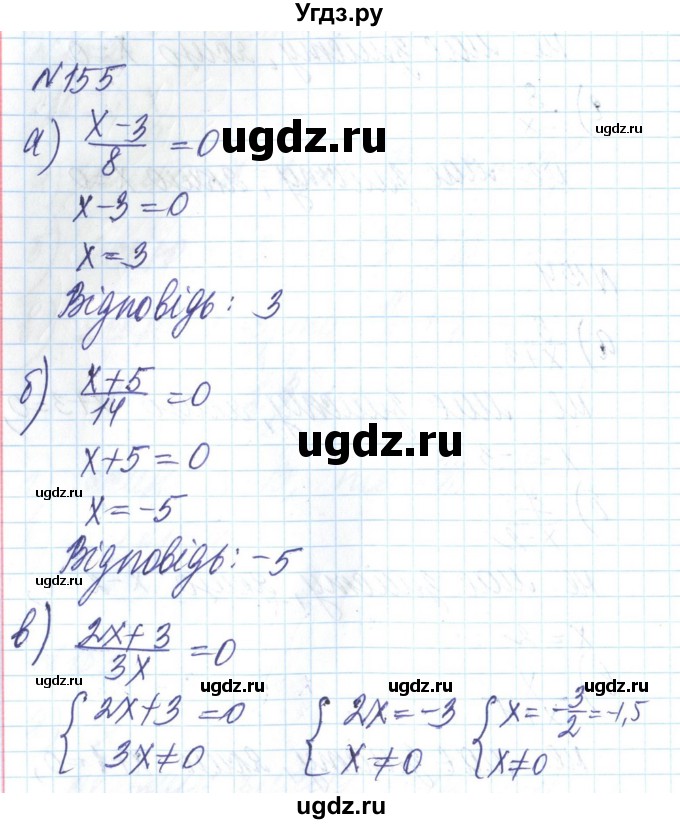 Угдз.ру
№155
а) (x-3)/8 = 0
ugdz.ru
x-3=0
x=3
Відповідь: 3
б) (x+5)/14 = 0
ugdz.ru
x+5=0
ugdz.ru ugdz.ru
x=-5
Відповідь: -5
ugdz.ru
в) (2x+3)/3x = 0
ugdz.ru ugdz.ru ugdz.ru
{ 2x+3=0 { 2x=-3 { x=-3/2=-1,5
3x≠0 x≠0 x≠0
ugdz.ru